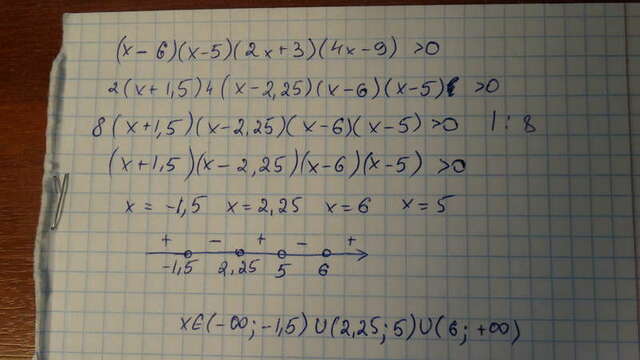 (x-6)(x-5)(2x+3)(4x-9) >0
2(x+1,5)4(x-2,25)(x-6)(x-5) >0
8(x+1,5)(x-2,25)(x-6)(x-5)>0 |:8
(x+1,5)(x-2,25)(x-6)(x-5) >0
x = -1,5 x=2,25 x=6 x=5
+ - + - +
-1,5 2,25 5 6
x∈(-∞;-1,5)∪(2,25;5)∪(6;+∞)